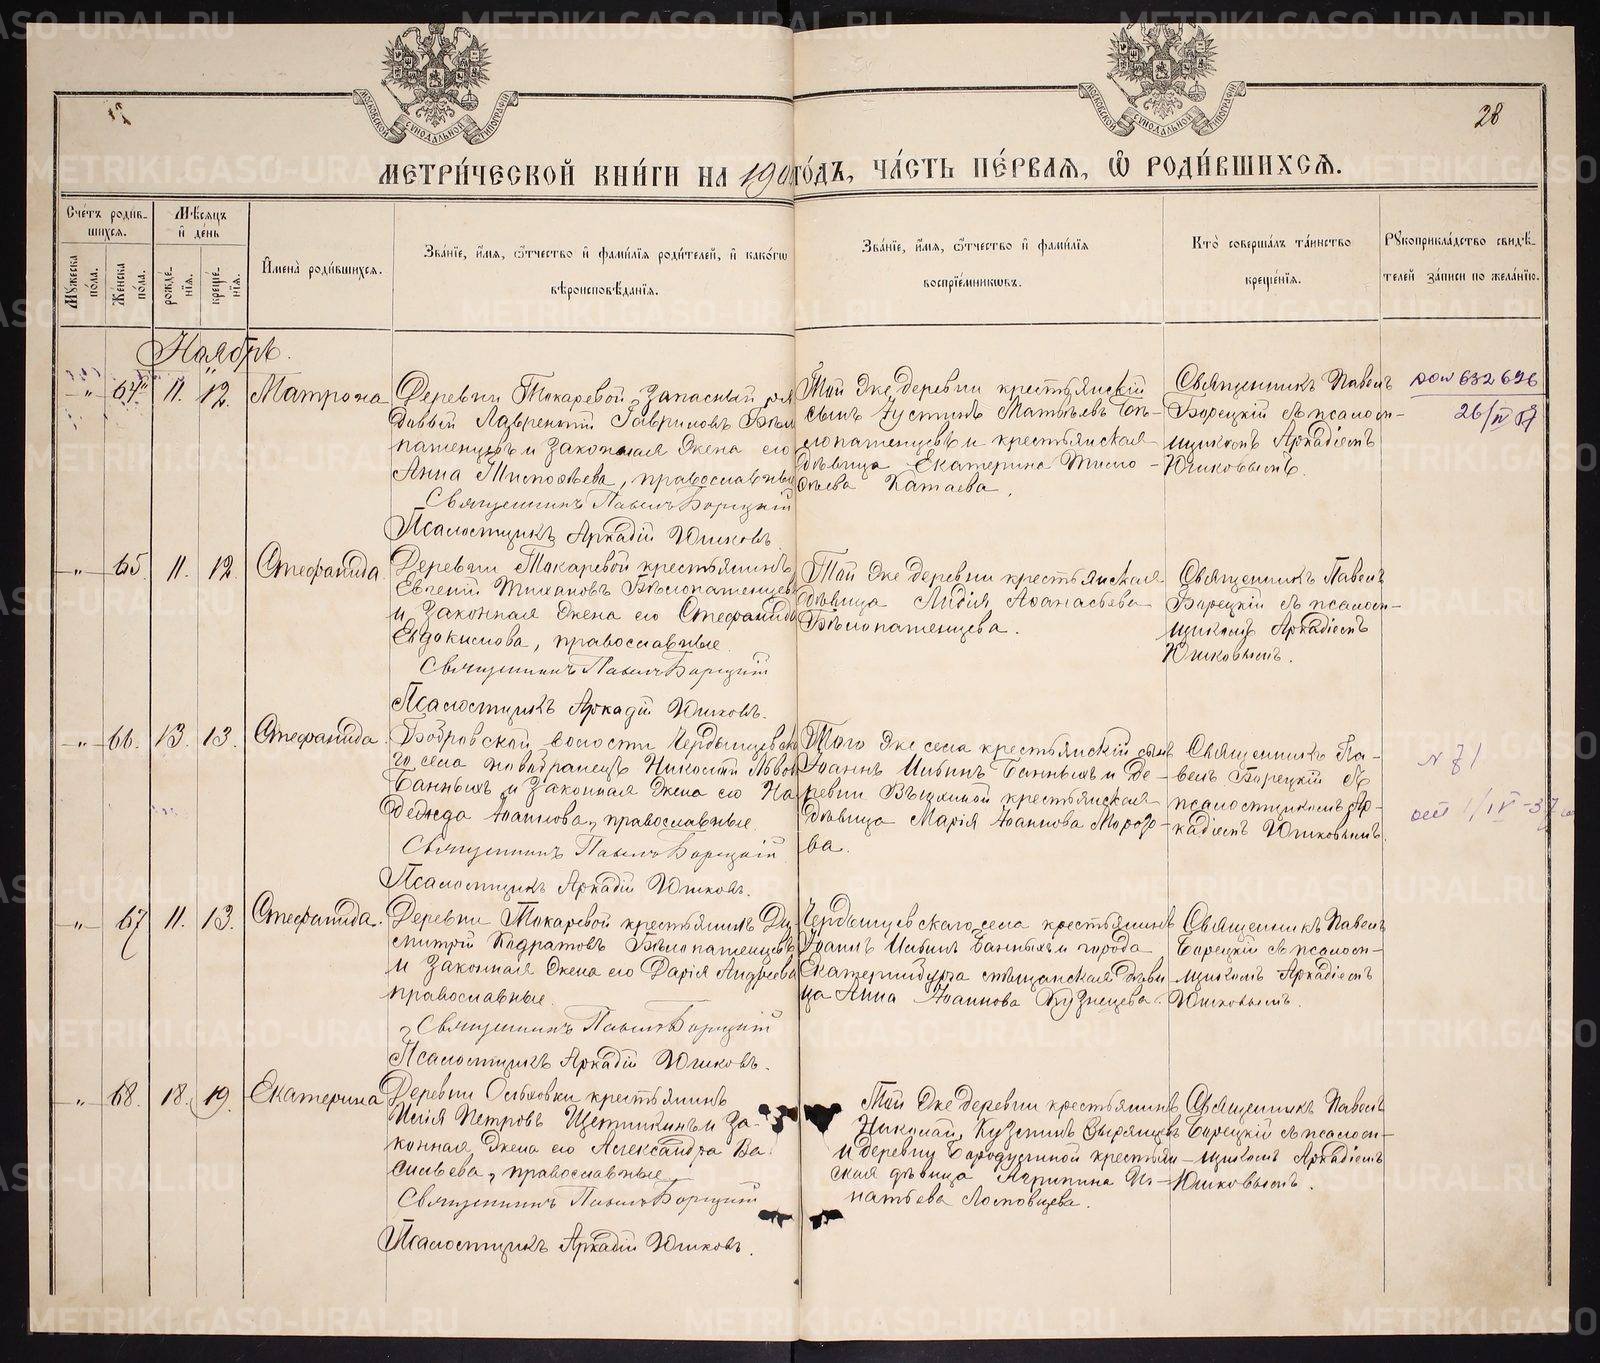 28
МЕТРИ́ЧЕСКОЙ КНИ́ГИ НА 190 ГО́ДЪ, ЧА́СТЬ ПЕ́РВАЯ, Ѡ РОДИ́ВШИХСЯ.
Сче́тъ роди́в-
шихся.
Мѣ́сяцъ
и́ де́нь
Му́жеска по́ла.
Же́нска по́ла.
рожде́-
нїя.
креще́-
нїя.
И҆мена̀ роди́вшихся.
Зва́нїе, и҆́мя, ѻ҆́тчество и҆ фами́лїя роди́телей, и҆ како́гѡ
вѣроисповѣ́данїя.
Зва́нїе, и҆́мя, ѻ҆́тчество и҆ фами́лїя
воспрїе́мникѡвъ.
Кто̀ соверша́лъ та́инство
креще́нїя.
Рꙋкоприкла́дство свидѣ́-
телей за́писи по жела́нїю.
Ноябрь.
„ 64 11. 12. Матрона
Деревни Токаревой запасный ря
довый Лаврентій Гавриловъ Бѣло
патенцевъ и законная жена его
Анна Тимофѣева, православные
Священникъ Павелъ Борецкій
Псаломщикъ Аркадій Юшковъ
Той же деревни крестьянскій
сынъ Іустинъ Матвѣевъ Бѣ-
лопатенцевъ и крестьянская
дѣвица Екатерина Тимо-
ѳѣева Катаева.
Священникъ Павелъ
Борецкій съ псалом-
щикомъ Аркадіемъ
Юшковымъ.
632626
26/IV
„ 65. 11. 12. Стефанида
Деревни Токаревой крестьянинъ
Евгеній Тихановъ Бѣлопатенцевъ
и законная жена его Стефанида
Евдокимова, православные.
Священникъ Павелъ Борецкій
Псаломщикъ Аркадій Юшковъ.
Той же деревни крестьянская
дѣвица Лидія Аѳанасьева
Бѣлопатенцева.
Священникъ Павелъ
Борецкій съ псалом-
щикомъ Аркадіемъ
Юшковымъ.
„ 66. 13. 13. Стефанида.
Бобровской волости Чердынцевска
го села новобранецъ Николай Львовъ
Банныхъ и законная жена его На
дежда Іоаннова, православные.
Священникъ Павелъ Борецкій
Псаломщикъ Аркадій Юшковъ.
Того же села крестьянскій сынъ
Іоаннъ Иовинъ Банныхъ и де-
ревни крестьянская
дѣвица Марія Іоаннова Моро-
ва.
Священникъ Па-
велъ Борецкій съ
псаломщикомъ Ар-
кадіемъ Юшковымъ.
N 71
1/IV-37
„ 67 11. 13. Стефанида.
Деревни Токаревой крестьянинъ Ди
митрій Кодратовъ Бѣлопатенцевъ
и законная жена его Дарія Андреева
православные.
Священникъ Павелъ Борецкій
Псаломщикъ Аркадій Юшковъ.
Чердынцевскаго села крестьянинъ
Іоаннъ Иовинъ Банныхъ и города
Екатеринбурга мѣщанская дѣви
ца Анна Іоаннова Кузнецова.
Священникъ Павелъ
Борецкій съ псалом-
щикомъ Аркадіемъ
Юшковымъ.
„ 68. 18. 19. Екатерина
Деревни Ольховки крестьянинъ
Илія Петровъ Щетининъ и за-
конная жена его Александра Ва
сильева, православные
Священникъ Павелъ Борецкій
Псаломщикъ Аркадій Юшковъ.
Той же деревни крестьянинъ
Николай Кузминъ Зырянцевъ
и деревни крестьян-
ская дѣвица Агрипина Иг-
натьева Ломовцева.
Священникъ Павелъ
Борецкій съ псалом-
щикомъ Аркадіемъ
Юшковымъ.
METRIKI.GASO-URAL.RU